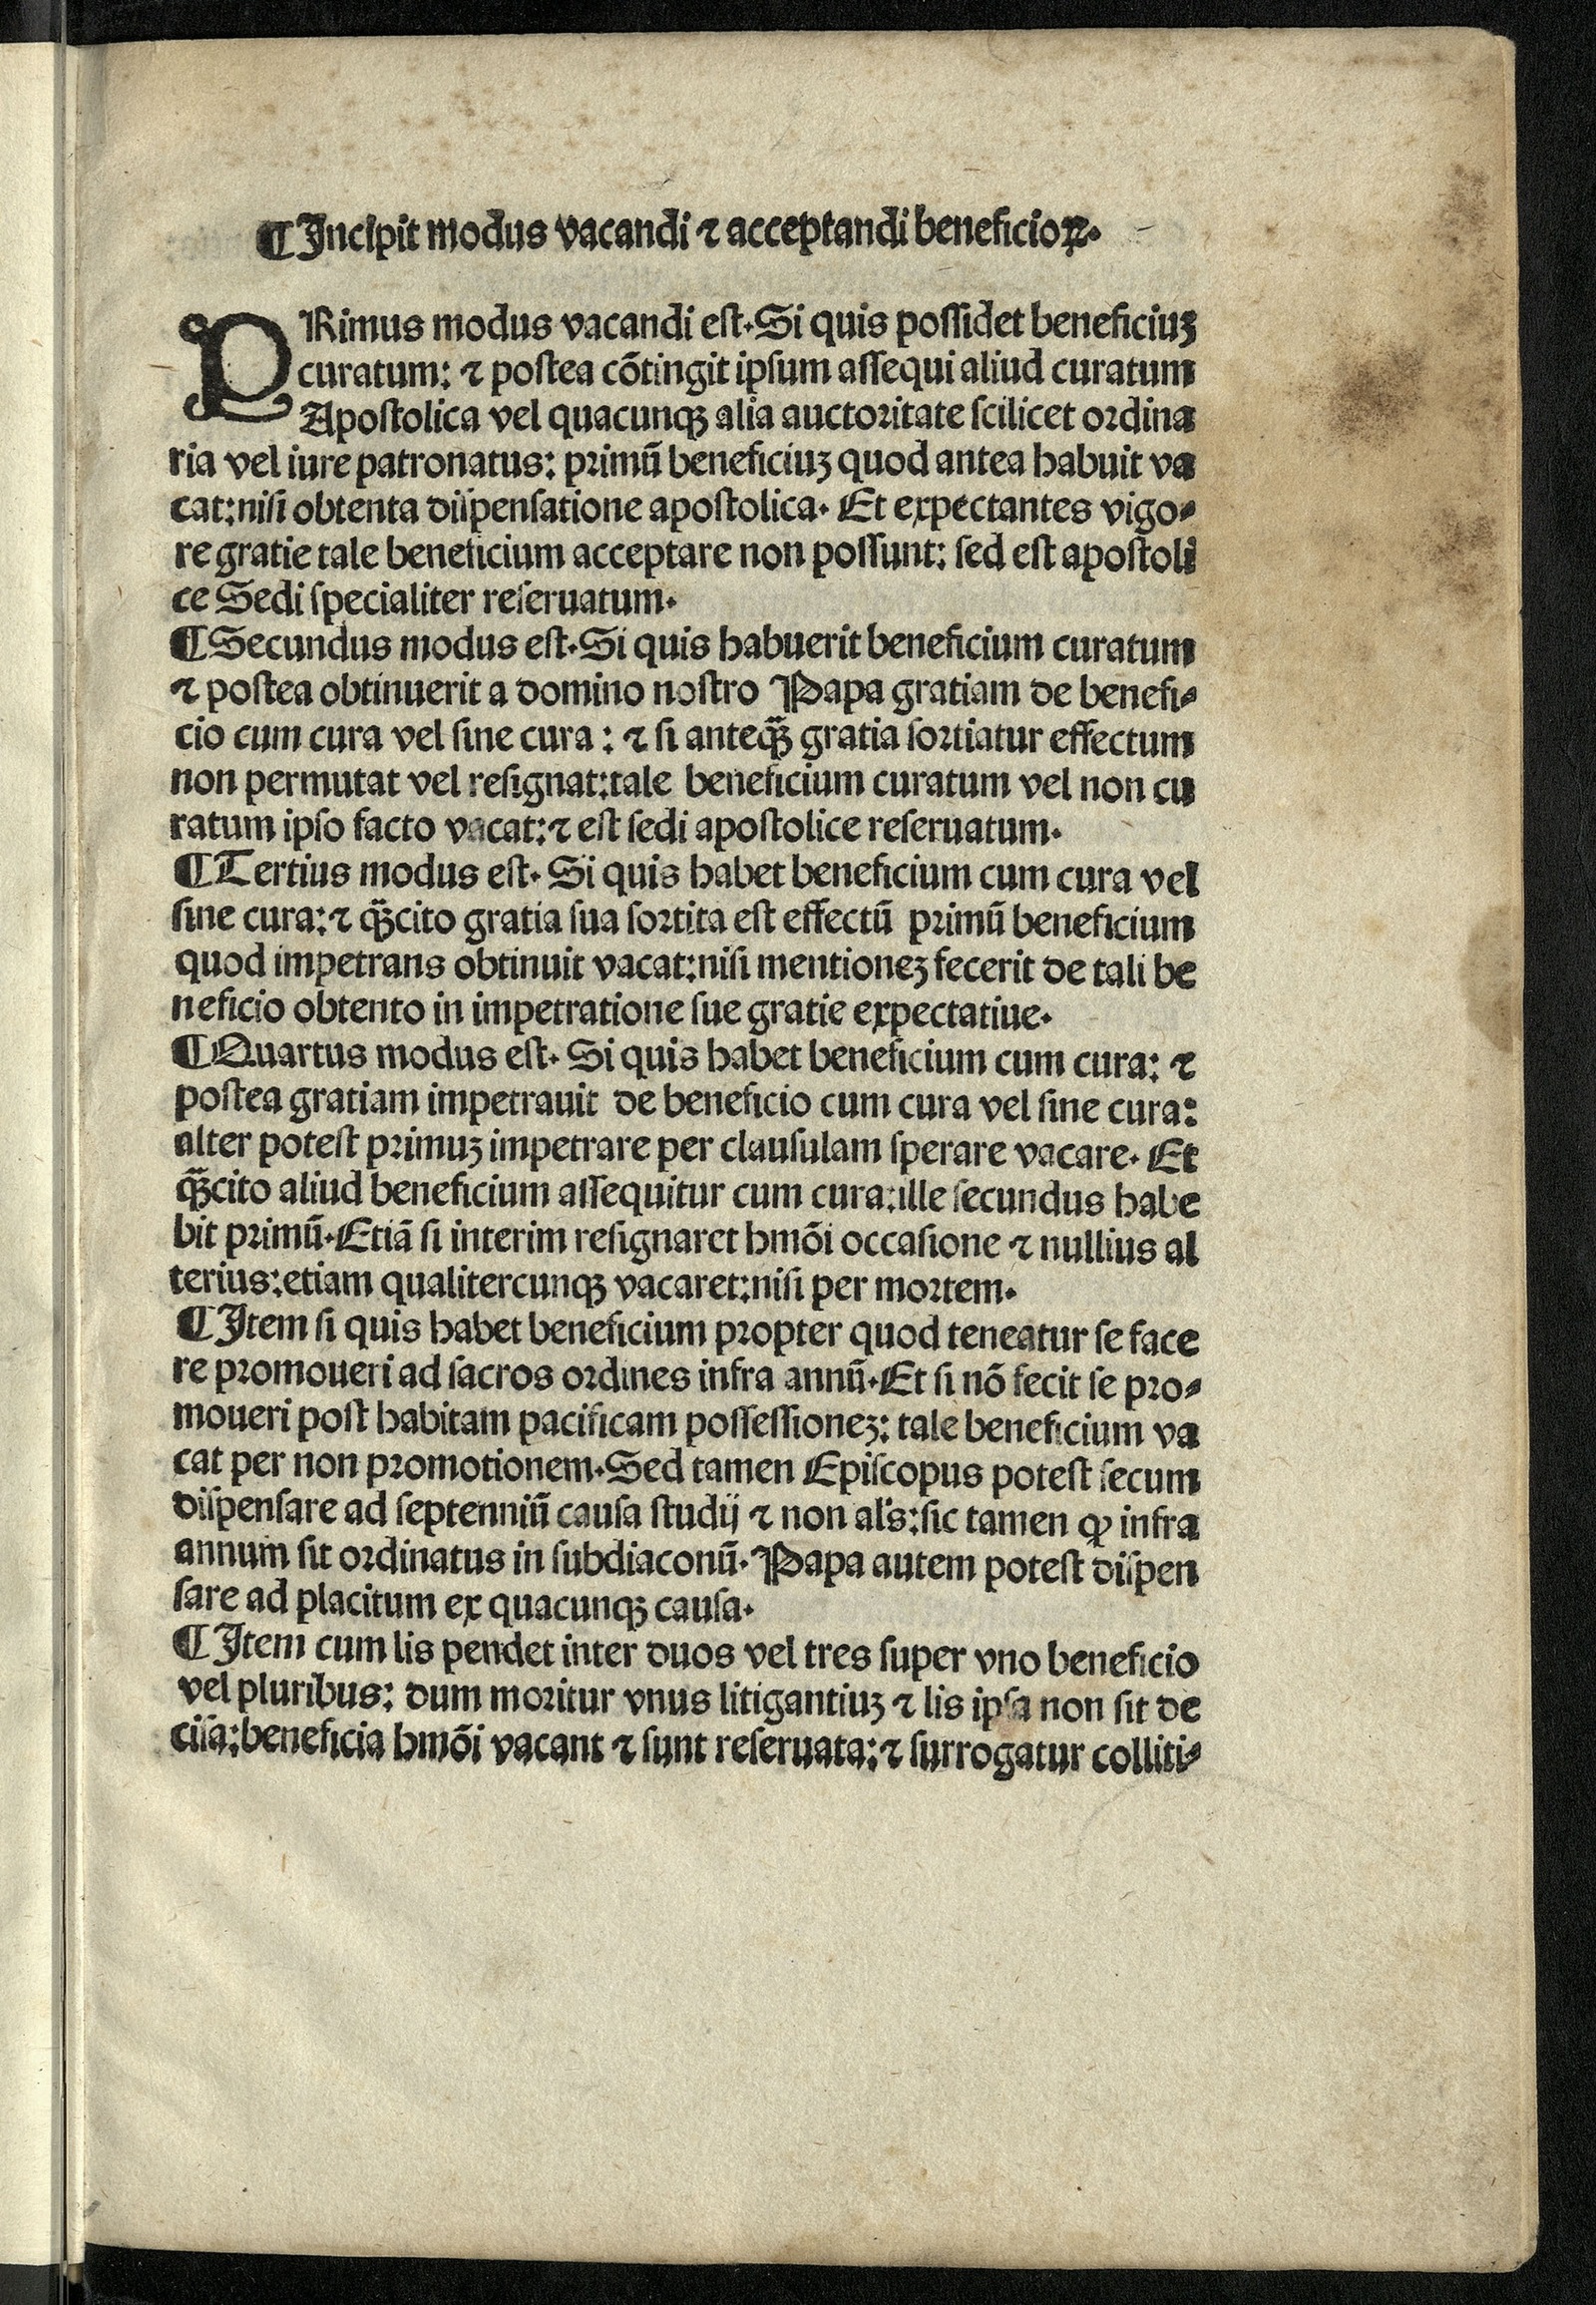 ¶Incipit modus vacandi ⁊ acceptandi beneficioꝝ.
PRimus modus vacandi eſt. Si quis poſſidet beneficiuꝫ
curatum: ⁊ poſtea cõtingit ipſum aſſequi aliud curatum
Apoſtolica vel quacunqꝫ alia auctoritate ſcilicet ordina
ria vel iure patronatus: primū beneficiuꝫ quod antea habuit va
cat:niſi obtenta diſpenſatione apoſtolica. Et expectantes vigo⸗
re gratie tale beneficium acceptare non poſſunt: ſed eſt apoſtoli
ce Sedi ſpecialiter reſeruatum.
¶Secundus modus eſt.Si quis habuerit beneficium curatum
⁊ poſtea obtinuerit a domino noſtro Papa gratiam de benefi⸗
cio cum cura vel ſine cura : ⁊ ſi anteq̃ꝫ gratia ſortiatur effectum
non permutat vel reſignat:tale beneficium curatum vel non cu
ratum ipſo facto vacat:⁊ eſt ſedi apoſtolice reſeruatum.
¶Tertius modus eſt. Si quis habet beneficium cum cura vel
ſine cura:⁊ q̃ꝫcito gratia ſua ſortita eſt effectū primū beneficium
quod impetrans obtinuit vacat:niſi mentioneꝫ fecerit de tali be
neficio obtento in impetratione ſue gratie expectatiue.
¶Quartus modus eſt. Si quis habet beneficium cum cura: ⁊
poſtea gratiam impetrauit de beneficio cum cura vel ſine cura:
alter poteſt primuꝫ impetrare per clauſulam ſperare vacare. Et
q̃ꝫcito aliud beneficium aſſequitur cum cura:ille ſecundus habe
bit primū.Etiã ſi interim reſignaret hmõi occaſione ⁊ nullius al
terius:etiam qualitercunqꝫ vacaret:niſi per mortem.
¶Item ſi quis habet beneficium propter quod teneatur ſe face
re promoueri ad ſacros ordines infra annū.Et ſi nõ fecit ſe pro⸗
moueri poſt habitam pacificam poſſeſſioneꝫ: tale beneficium va
cat per non promotionem.Sed tamen Epiſcopus poteſt ſecum
diſpenſare ad ſeptenniū cauſa ſtudij ⁊ non al's:ſic tamen ꝙ infra
annum ſit ordinatus in ſubdiaconū. Papa autem poteſt diſpen
ſare ad placitum ex quacunqꝫ cauſa.
¶Item cum lis pendet inter duos vel tres ſuper vno beneficio
vel pluribus: dum moritur vnus litigantiuꝫ ⁊ lis ipſa non ſit de
ciſa:beneficia hmõi vacant ⁊ ſunt reſeruata:⁊ ſurrogatur colliti⸗